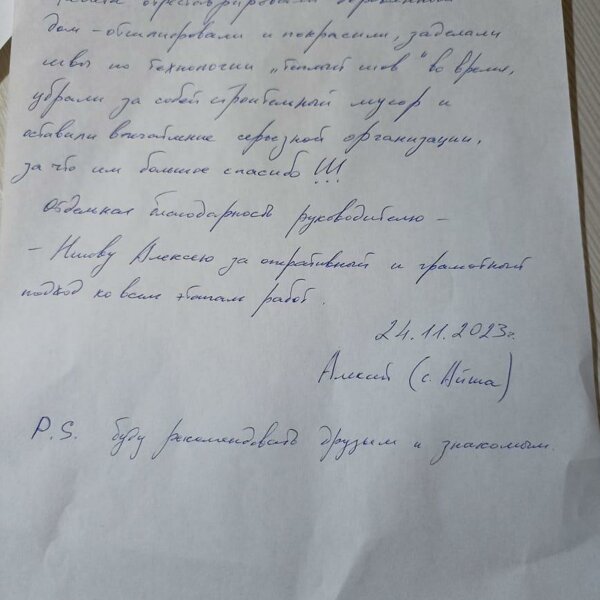 отреставрировали деревянный
дом - отшлифовали и покрасили, заделали
швы по технологии "теплый шов" во время,
убрали за собой строительный мусор и
оставили впечатление серьезной организации,
за что им большое спасибо !!!
Отдельная благодарность руководителю -
- Алексею за оперативный и грамотный
подход ко всем этапам работ.
24.11.2023г.
Алексей (с. Айша)
P.S. буду рекомендовать друзьям и знакомым.